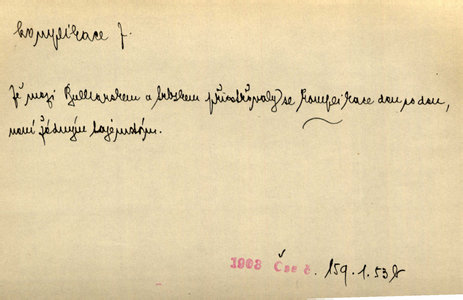 komplikace f.
Že mezi Bulharskem a Srbskem přiostřovaly se komplikace den po dni,
není žádným tajemstvím.
1903 Čas č. 159.1.53b